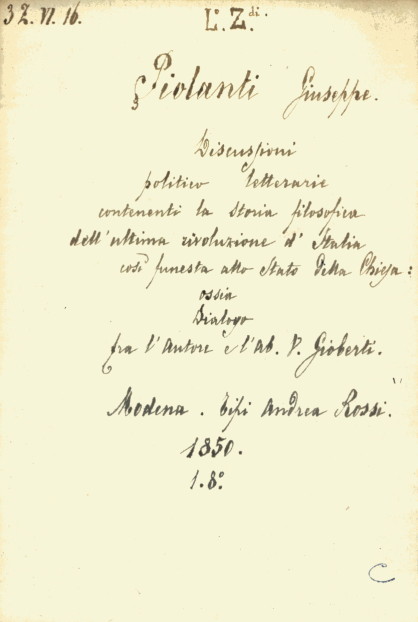 3 Z. VI. 16.
L. Z.di.
Piolanti Giuseppe.
Discussioni
politico letterarie
contenenti la storia filosofica
dell'ultima rivoluzione d'Italia
così funesta allo Stato della Chiesa:
ossia
Dialogo
fra l'Autore e l'Ab. V. Gioberti.
Modena. Tipi Andrea Rossi.
1850.
1.8°
C